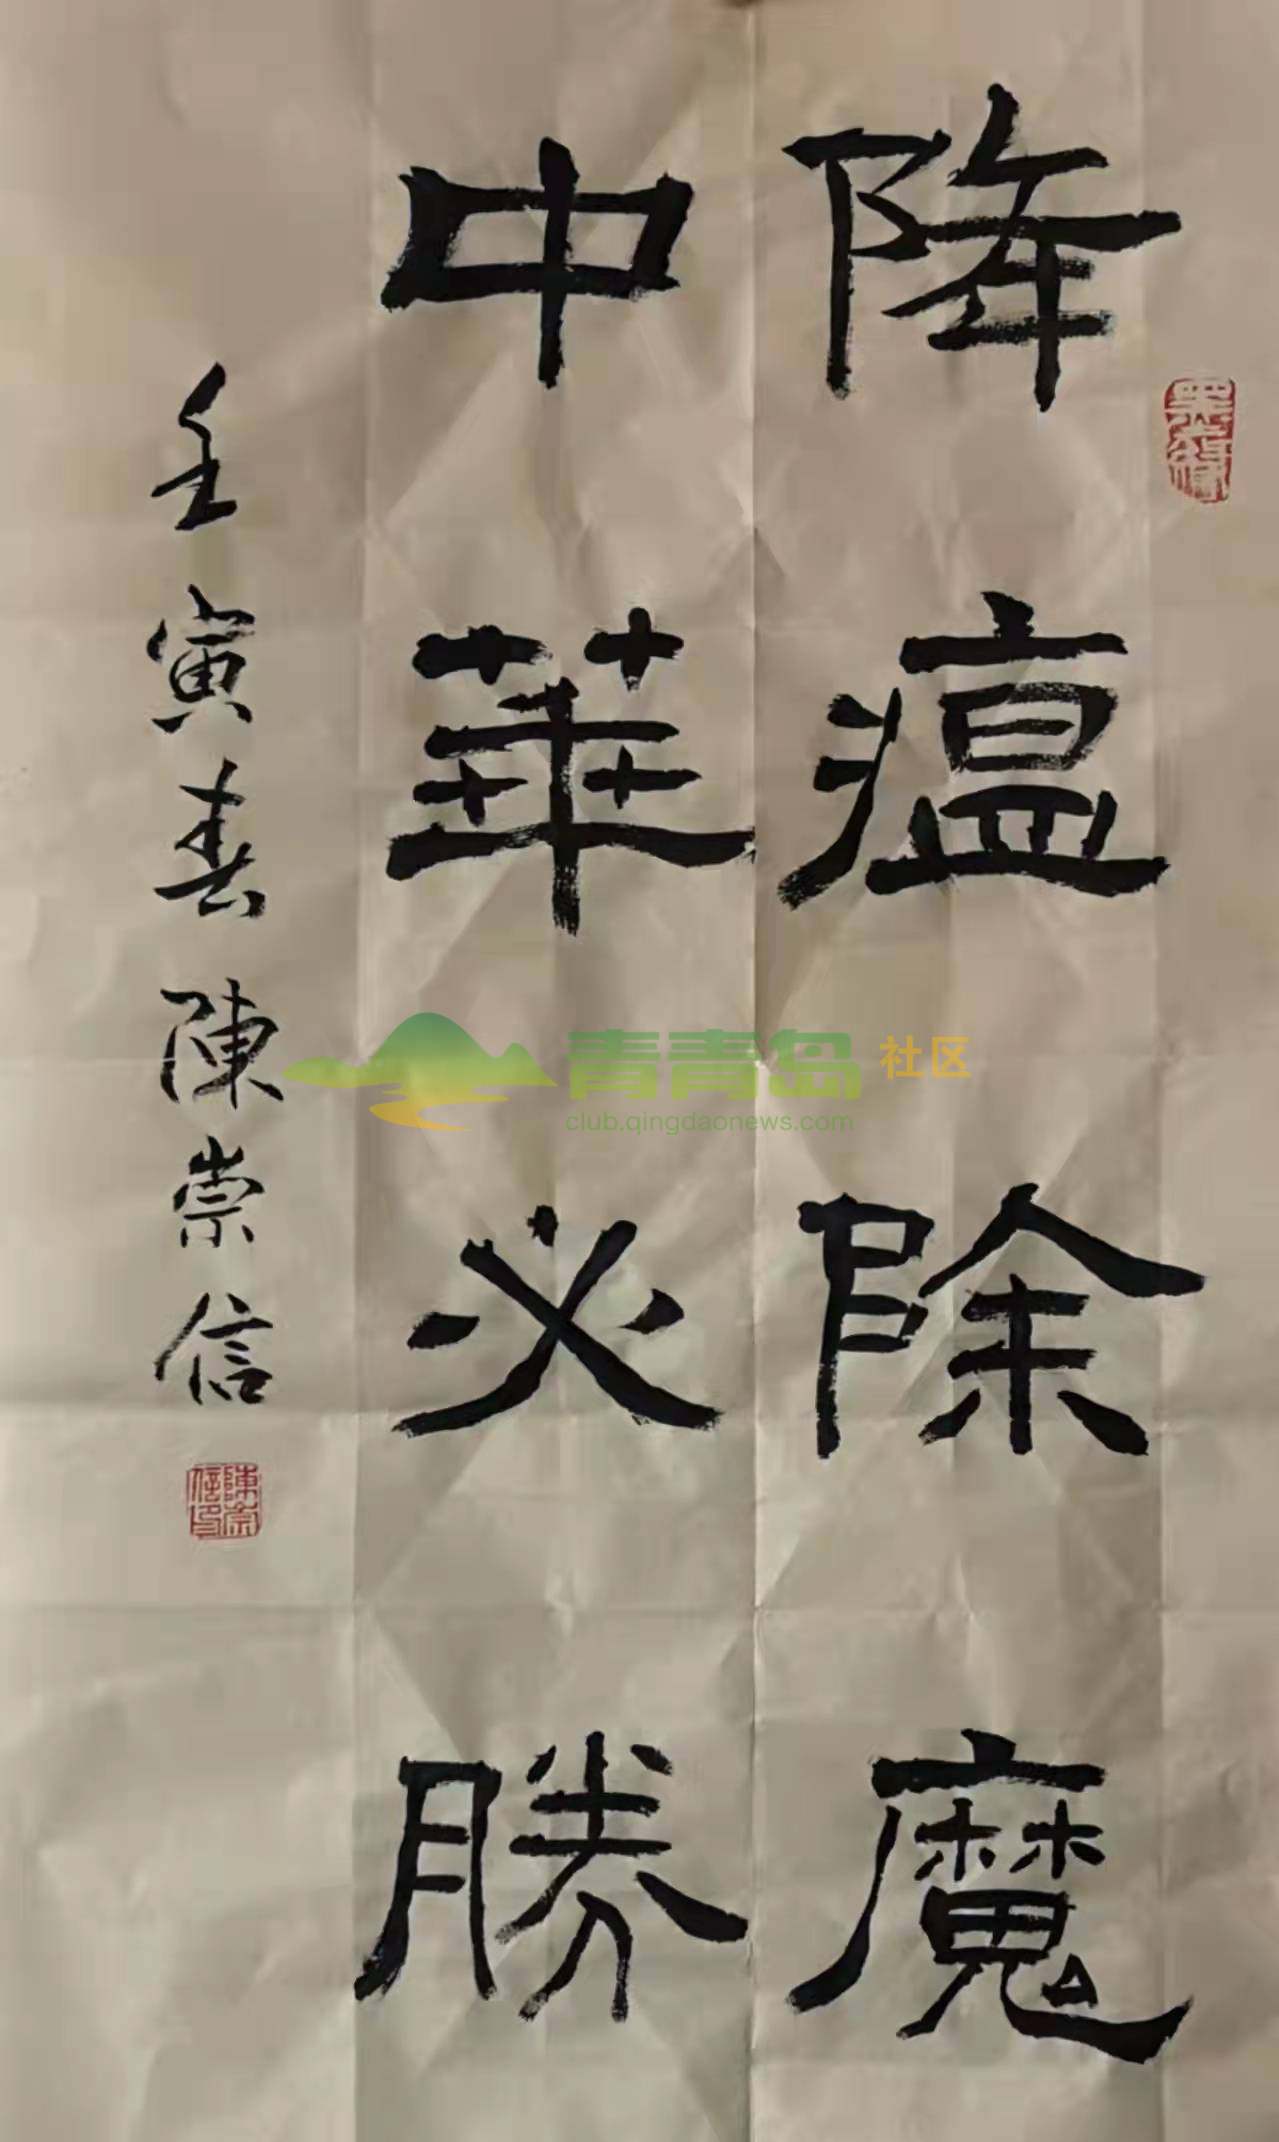 降瘟除魔
中華必勝
壬寅春陳崇信
陳崇信印
青青岛社区
club.qingdaonews.com